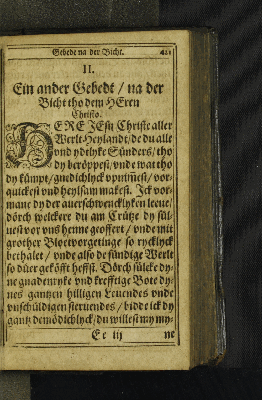 Gebedt na der Bicht. 421
II.
Ein ander Gebedt / na der
Bicht tho dem HEren
Christo.
HERE JEsu Christe aller
Werlt Heylandt / de du alle
vnd ydtlyke Sünders / tho
dy beröppest / vnde wat tho
dy kümpt / gnedichlyck vpnimest / vor-
quickest vnd heylsam makest. Ick vor-
mane dy der auerschwencklyken leeue /
dörch welckere du am Crütze dy sül-
uest vor vns henne geoffert / vnde mit
grother Bloetvorgetinge so rycklyck
bethalet / vnde also de sündige Werlt
so düer geköfft heffst. Dörch sülcke dy-
ne gnadenryke vnd krefftige Bote dy-
nes gantzen hilligen Leuendes vnde
vnschüldigen steruendes / bidde ick dy
gantz demödichlyck / du willest my my-
Ee iij ne